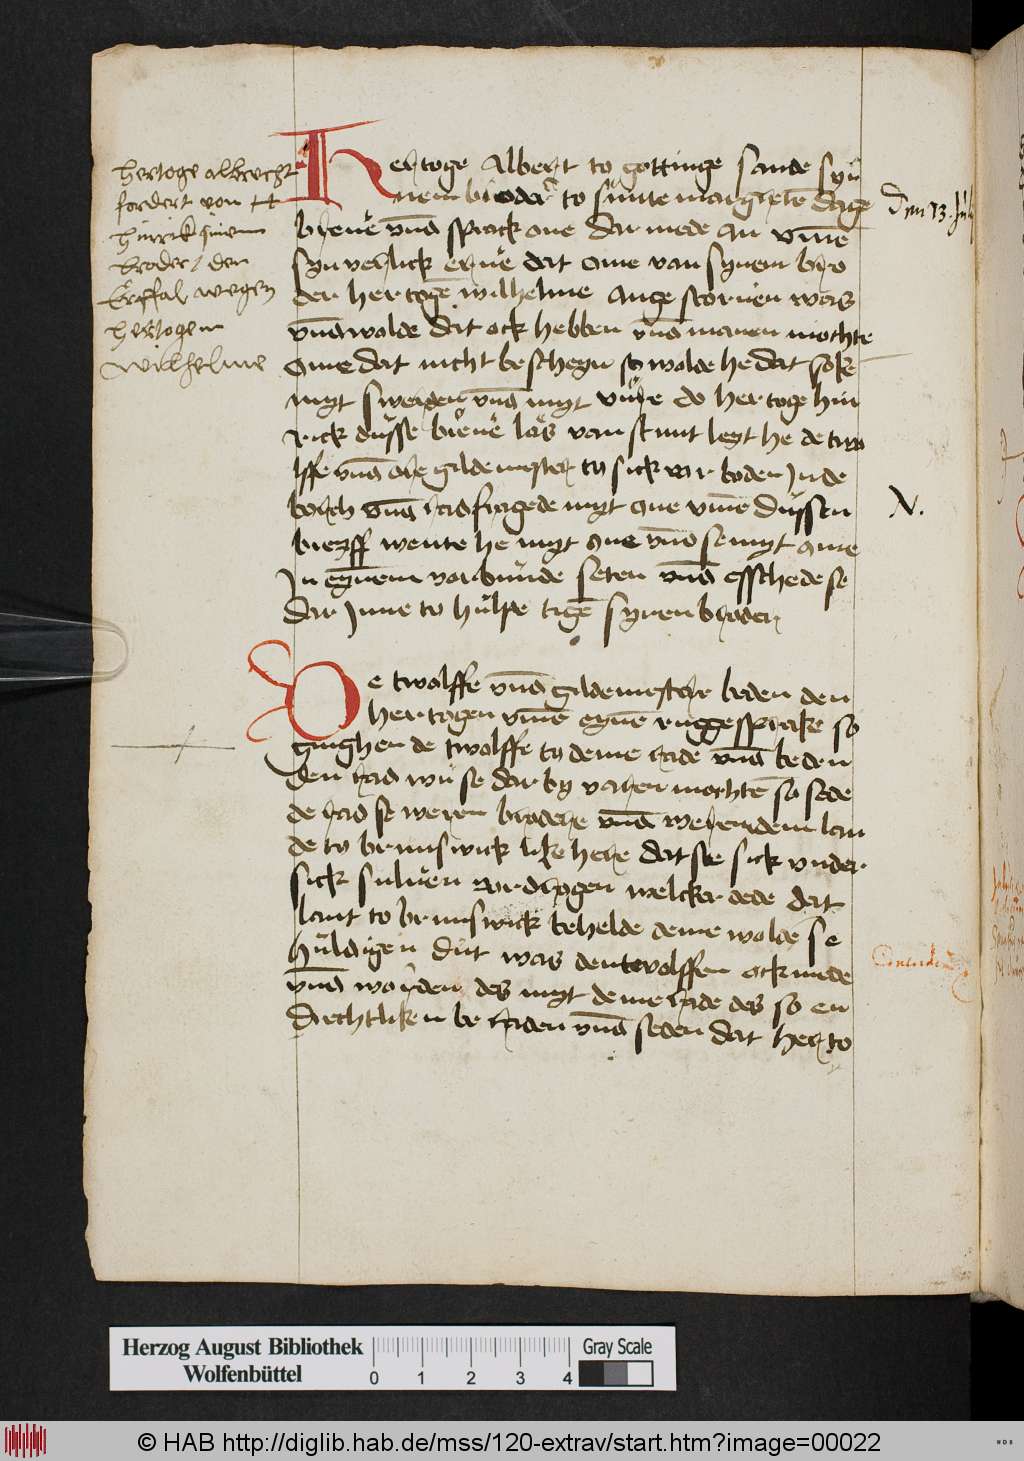 hertoge albrecht
fordert von H
hinrik sinem
broder / den
Erffal wegen
hertogem
Wilhelme
Hertoge Albert to gottinge sande syn̄
nem brodeř to sunte margretē dage
breue vnd̄ sprack one dar mede an vm̄e
syn veṙlick erue dat ome van synem bro
der hertogē wilhelme Ange storuen was
vnd̄ wolde dat ock hebben vnd̄ manen mochte
ome dat nicht beschegn so wolde he dat soke
myt swerden vnd̄ myt vure do hertoge hin
rick dusse breue las van stunt leyt he de two
lffe vnd̄ alle gildemester to sick vor boden In de
borch vnd̄ radfragede myt one vm̄e dussen
breyff wente he myt one vnd̄ se myt ome
In eynem vorbunde seten vnd̄ esschede se
dar Inne to hulpe tigē synen broder
Den 13. July
N.
De twolffe vnd̄ gildemestere beden den
hertogen vm̄e eynē ruggesprake so
ginghen de twolffe to deme rade vnd̄ beden
den rad wu se dar by varen mochtē so sede
de rad se weren brodere vnd̄ weren dem lan
de to brunswick like here dat se sick vnder
sick suluen vordrogen welcker dede dat
lant to brunswick behelde deme wolde se
huldigen dut was den twolffen ock mede
vnd̄ worden des myt deme rade des so en
drechtliken be raden vnd̄ seden dat herto
Herzog August Bibliothek
Wolfenbüttel
0 1 2 3 4
Gray Scale
© HAB http://diglib.hab.de/mss/120-extrav/start.htm?image=00022